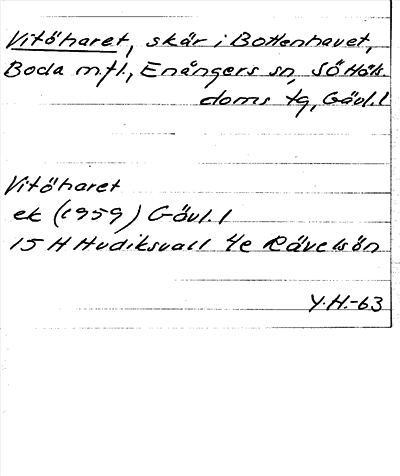 Vitöharet, skär i Bottenhavet,
Boda m.fl., Enångers sn,
doms tg, Gävl. l
Vitöharet
ek (1959) Gävl. l
15 H Hudiksvall 4e Räveskön
Y.H.-63